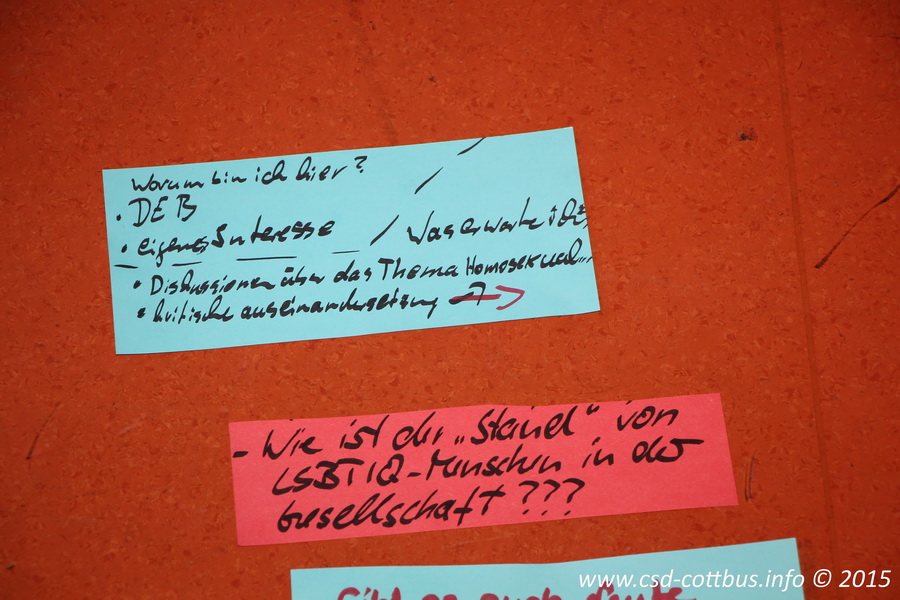 Warum bin ich hier?
• DEB
• eigenes Interesse / Was erwarte ich?
• Diskussionen über das Thema Homosexual...
• kritische auseinandersetzung →
- Wie ist der „Stand“ von
LSBTIQ-Menschen in der
Gesellschaft ???
Gibt es auch heute
www.csd-cottbus.info © 2015